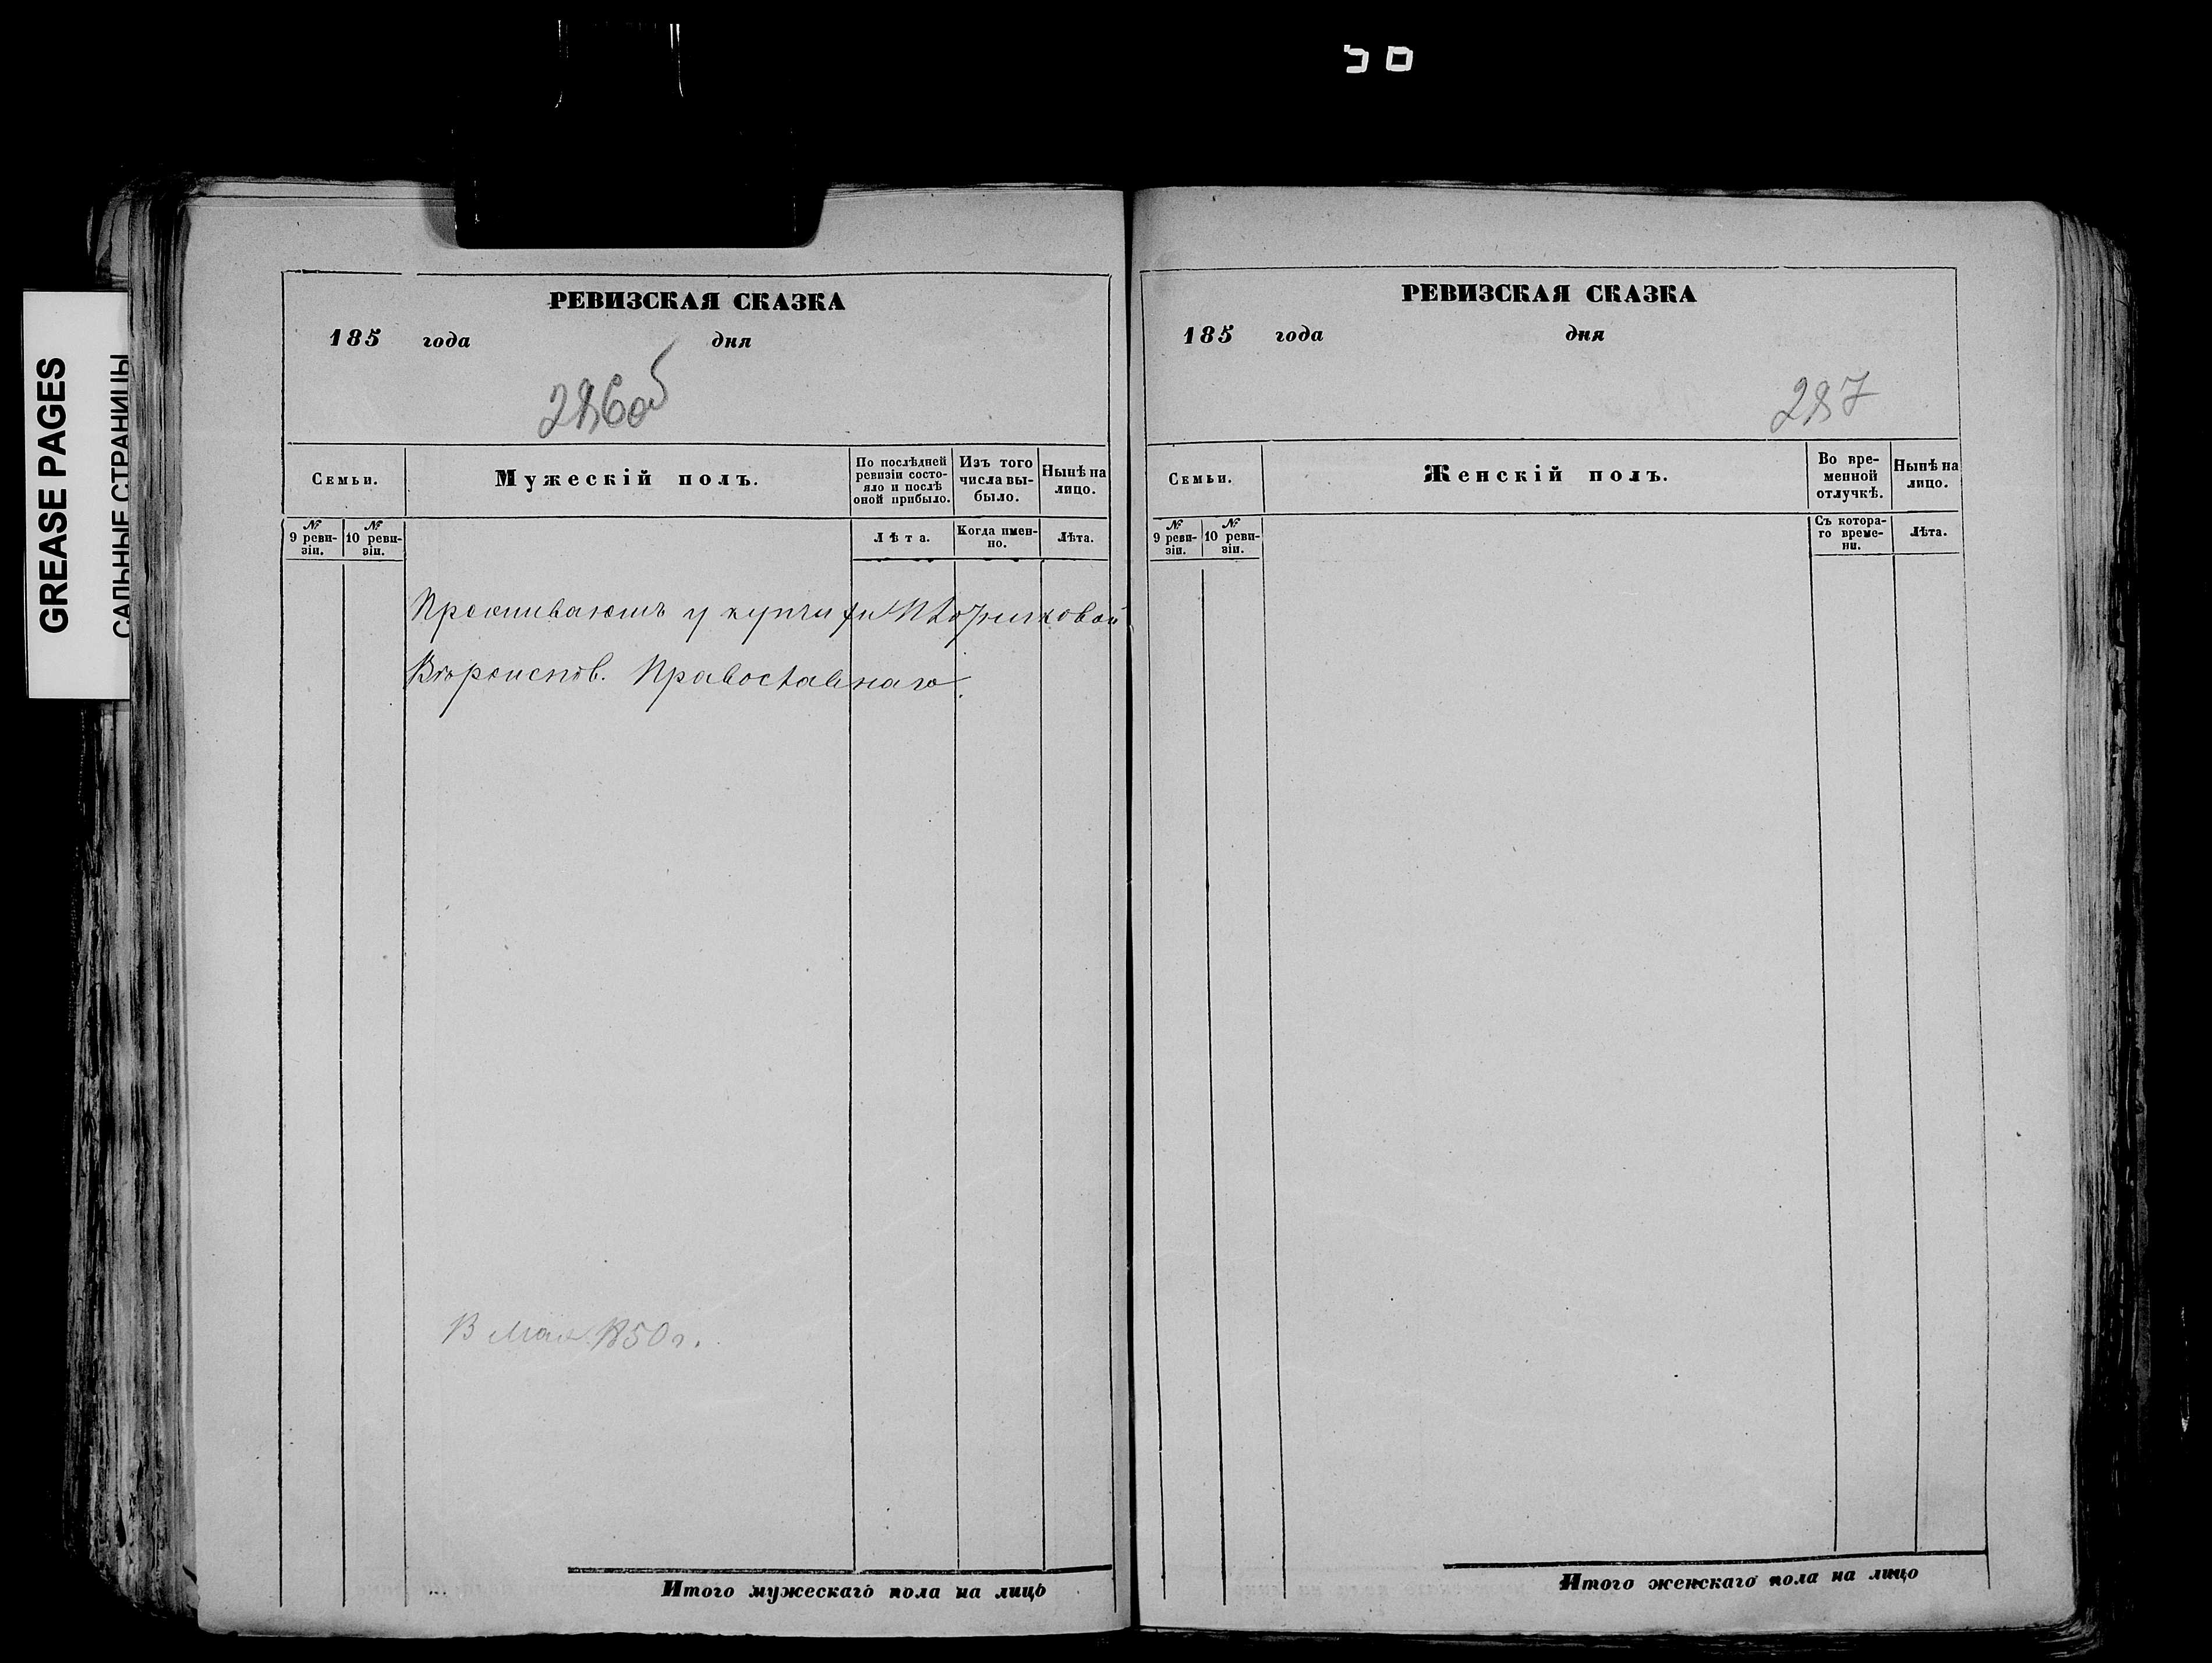 GREASE PAGES
САЛЬНЫЕ СТРАНИЦЫ
РЕВИЗСКАЯ СКАЗКА
185 года дня
286об
Семьи.
Мужескій полъ.
По послѣдней ревизіи состо-
яло и послѣ
оной прибыло.
Изъ того
числа вы-
было.
Нынѣ на
лицо.
№
9 реви-
зіи.
№
10 реви-
зіи.
Лѣта.
Когда имен-
но.
Лѣта.
Проживаютъ у купчихи
Вѣроиспов. Православнаго.
В Мая 1850 г.
Итого мужескаго пола на лицо
РЕВИЗСКАЯ СКАЗКА
185 года дня
287
Семьи.
Женскій полъ.
Во вре-
менной
отлучкѣ.
Нынѣ на
лицо.
№
9 реви-
зіи.
№
10 реви-
зіи.
Съ котора-
го време-
ни.
Лѣта.
Итого женскаго пола на лицо